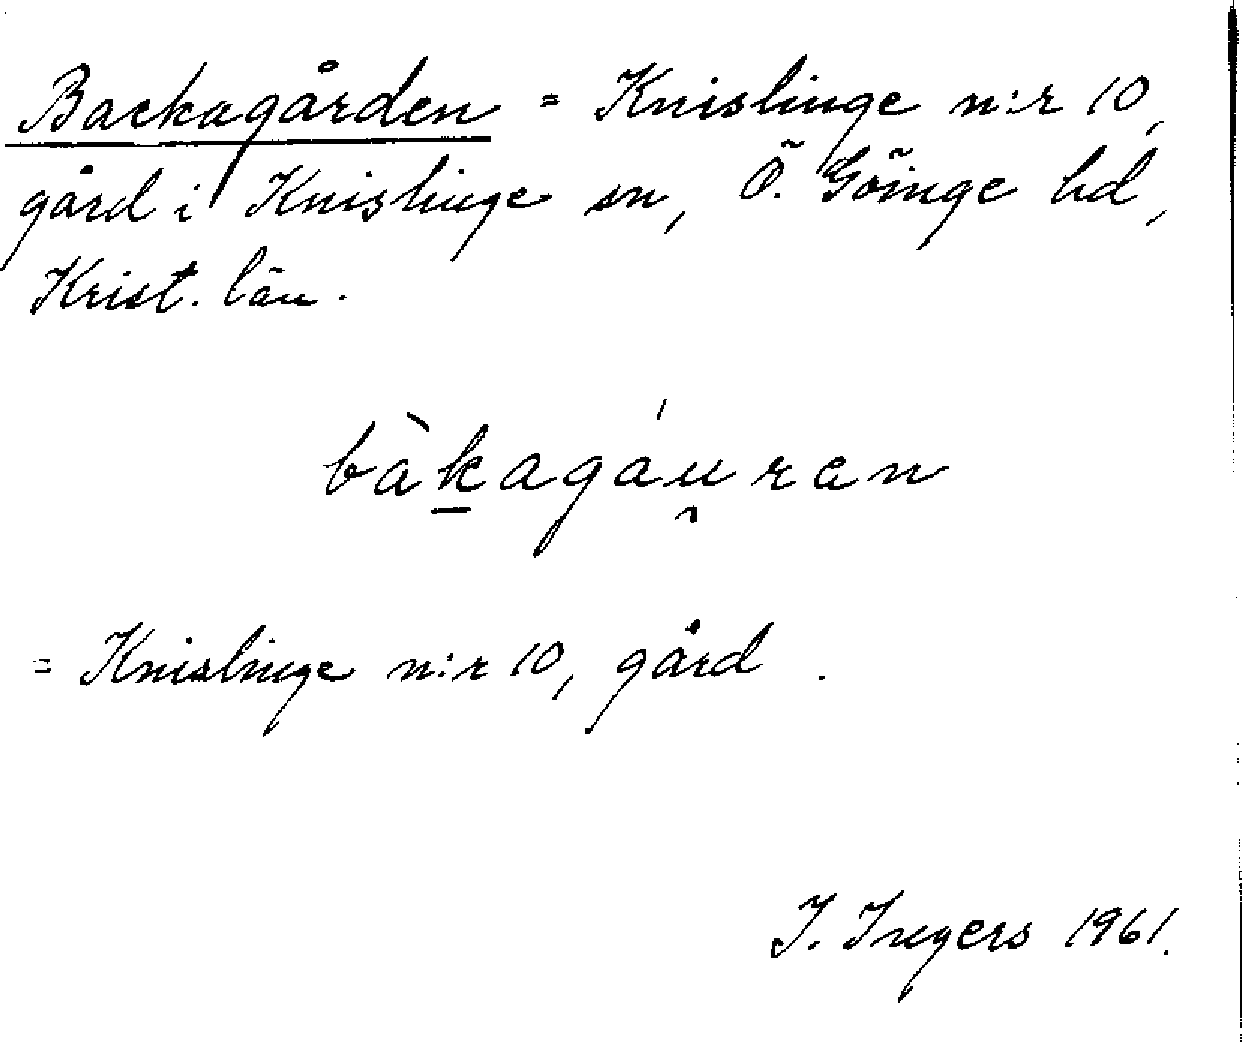 Backagården = Knislinge n:r 10,
gård i Knislinge sn, Ö. Göinge hd,
Krist. län.
bàkagáu̯ran
= Knislinge n:r 10, gård.
I. Ingers 1961.